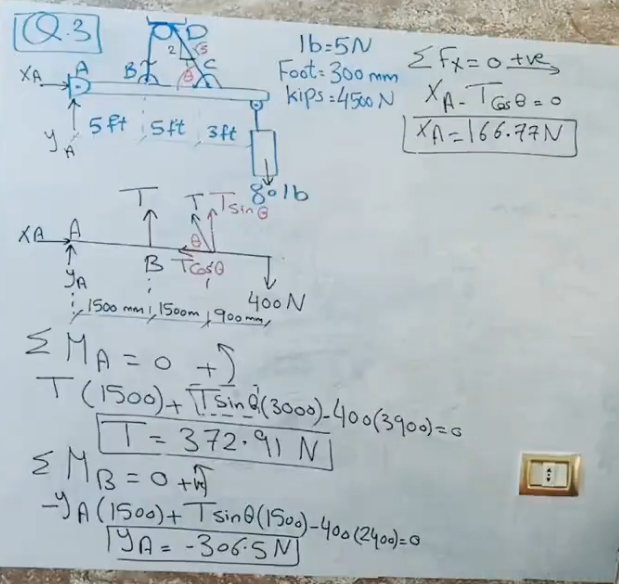 Q.3
D
2 √5
XA A B θ C
5ft 5ft 3ft
yA
80 lb
lb=5N
Foot=300mm
kips=4500N
ΣFx=0 +ve
XA-Tcosθ=0
XA=166.77N
T T Tsinθ
XA A θ
B Tcosθ
yA
400N
1500mm 1500m 900mm
ΣMA=0 +
T(1500)+Tsinθ(3000)-400(3900)=0
T=372.91 N
ΣMB=0 +ve
-yA(1500)+Tsinθ(1500)-400(2400)=0
yA=-306.5N